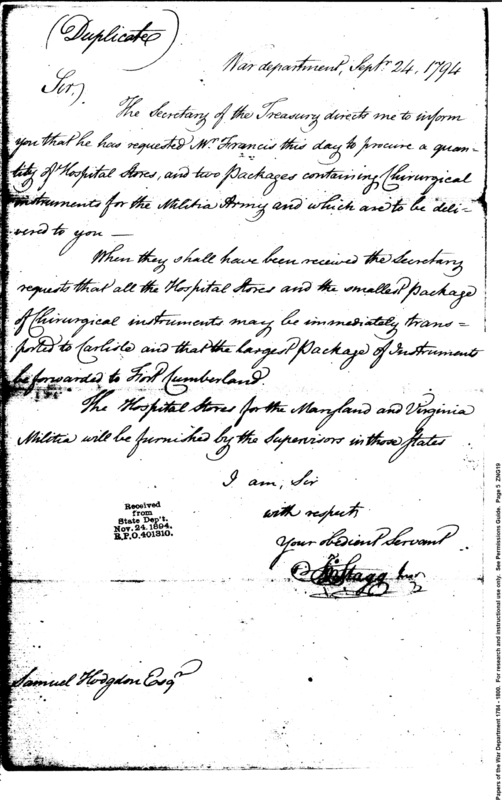 (Duplicate)
War department, Septr. 24, 1794
Sir,
The Secretary of the Treasury directs me to inform
you that he has requested Mr. Francis this day to procure a quan=
tity of Hospital Stores, and two Packages containing Chirurgical
instruments for the Militia Army and which are to be deli=
vered to you —
When they shall have been received the Secretary
requests that all the Hospital Stores and the smallest Package
of Chirurgical instruments may be immediately trans=
ported to Carlisle and that the largest Package of Instruments
be forwarded to Fort Cumberland
The Hospital Stores for the Maryland and Virginia
Militia will be furnished by the Supervisors in those States
I am, Sir
with respect,
Your obedient Servant
Jno Stagg Junr
Received
from
State Dep't.
Nov. 24. 1894.
R.P.O. 401310.
Samuel Hodgdon Esqr
Papers of the War Department 1784 - 1800. For research and instructional use only. See Permissions Guide. Page 5 ZNG19